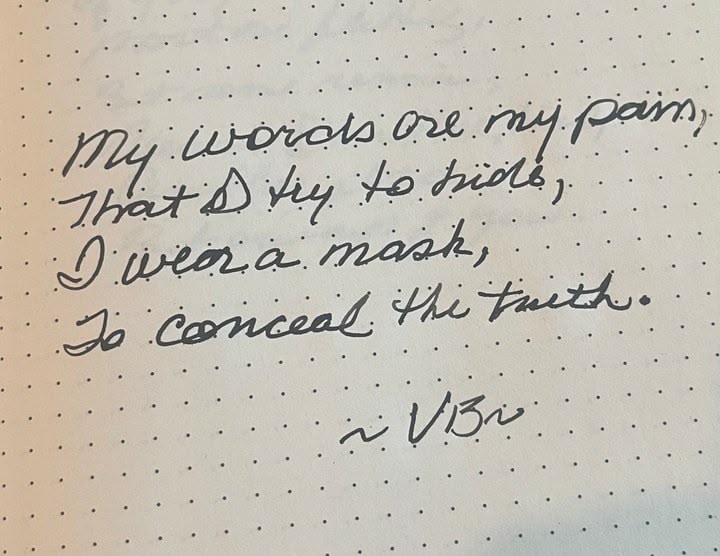 My words are my pain,
That I try to hide,
I wear a mask,
To conceal the truth.
~ VB ~